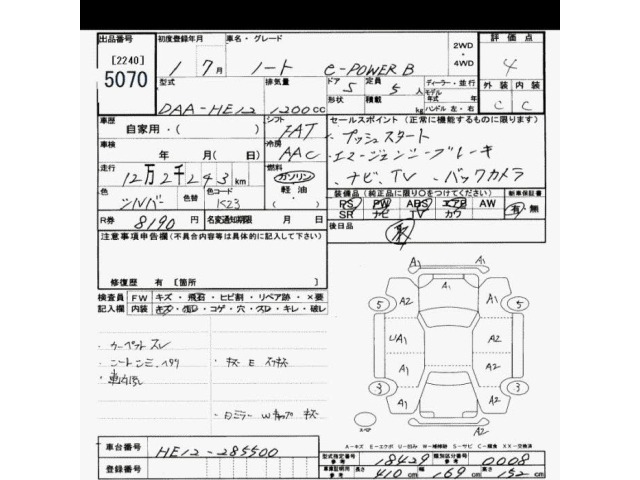 出品番号 初度登録年月 車名・グレード 2WD・4WD 評価点
[2240]
5070
1年 7月 ノート e-POWER B 4
型式 排気量 ドア 定員 ディーラー・並行
DAA-HE12 1200cc 5 5人 モデル年式 年
形状 積載 kg ハンドル 左・右
外装 内装
C C
車歴 シフト セールスポイント(正常に機能するものに限ります)
自家用・( ) FAT ・プッシュスタート
車検 冷房 ・エマージェンシーブレーキ
年 月(日) AAC ・ナビ、TV ・バックカメラ
走行 燃料
12万2千243km ガソリン 軽油
色 色替 色コード
シルバー K23
装備品(純正品に限り○をつけてください) 新車保証書
PS PW ABS エアB AW 有・無
SR ナビ TV カワ
R券 8190円 名変通知期限 月 日
後日品
注意事項申告欄(不具合内容等は具体的に記入して下さい)
修復歴 有[箇所 ]
検査員記入欄 FW キズ・飛石・ヒビ割・リペア跡・×要
内装 キズ・汚レ・コゲ・穴・スレ・キレ・破レ
・カーペットスレ
・シートシミ、ヘタリ
・車内臭
キズ E
・Dミラー Wキャップ キズ
A1 A1 A1
5 A2 A2 5
UA1 A2
A1 A2
3 A1 A2 3
A2
A2
スペア
A-キズ E-エクボ U-凹み W-補修跡 S-サビ C-腐食 XX-交換済
車台番号 HE12-285500
登録番号
型式指定番号 参考 18429 類別区分番号 参考 0008
車庫証明用 参考 長さ 410cm 幅 169cm 高さ 152cm